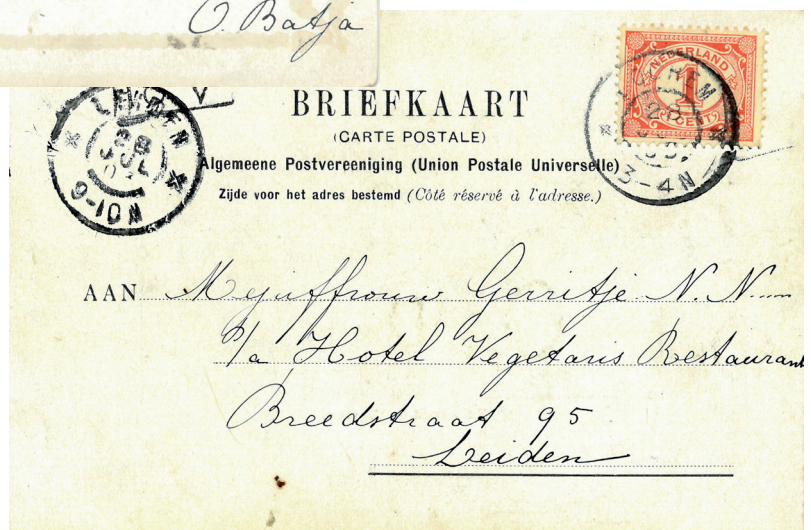 O. Batja
BRIEFKAART
(CARTE POSTALE)
Algemeene Postvereeniging (Union Postale Universelle)
Zijde voor het adres bestemd (Côté réservé à l'adresse.)
NEDERLAND
1
CENT
LEIDEN
28
JUL
9-10N
28
3-4N
AAN Mejuffrouw Gerritje N. N.
p/a Hotel Vegetaris Restaurant
Breedstraat 95
Leiden